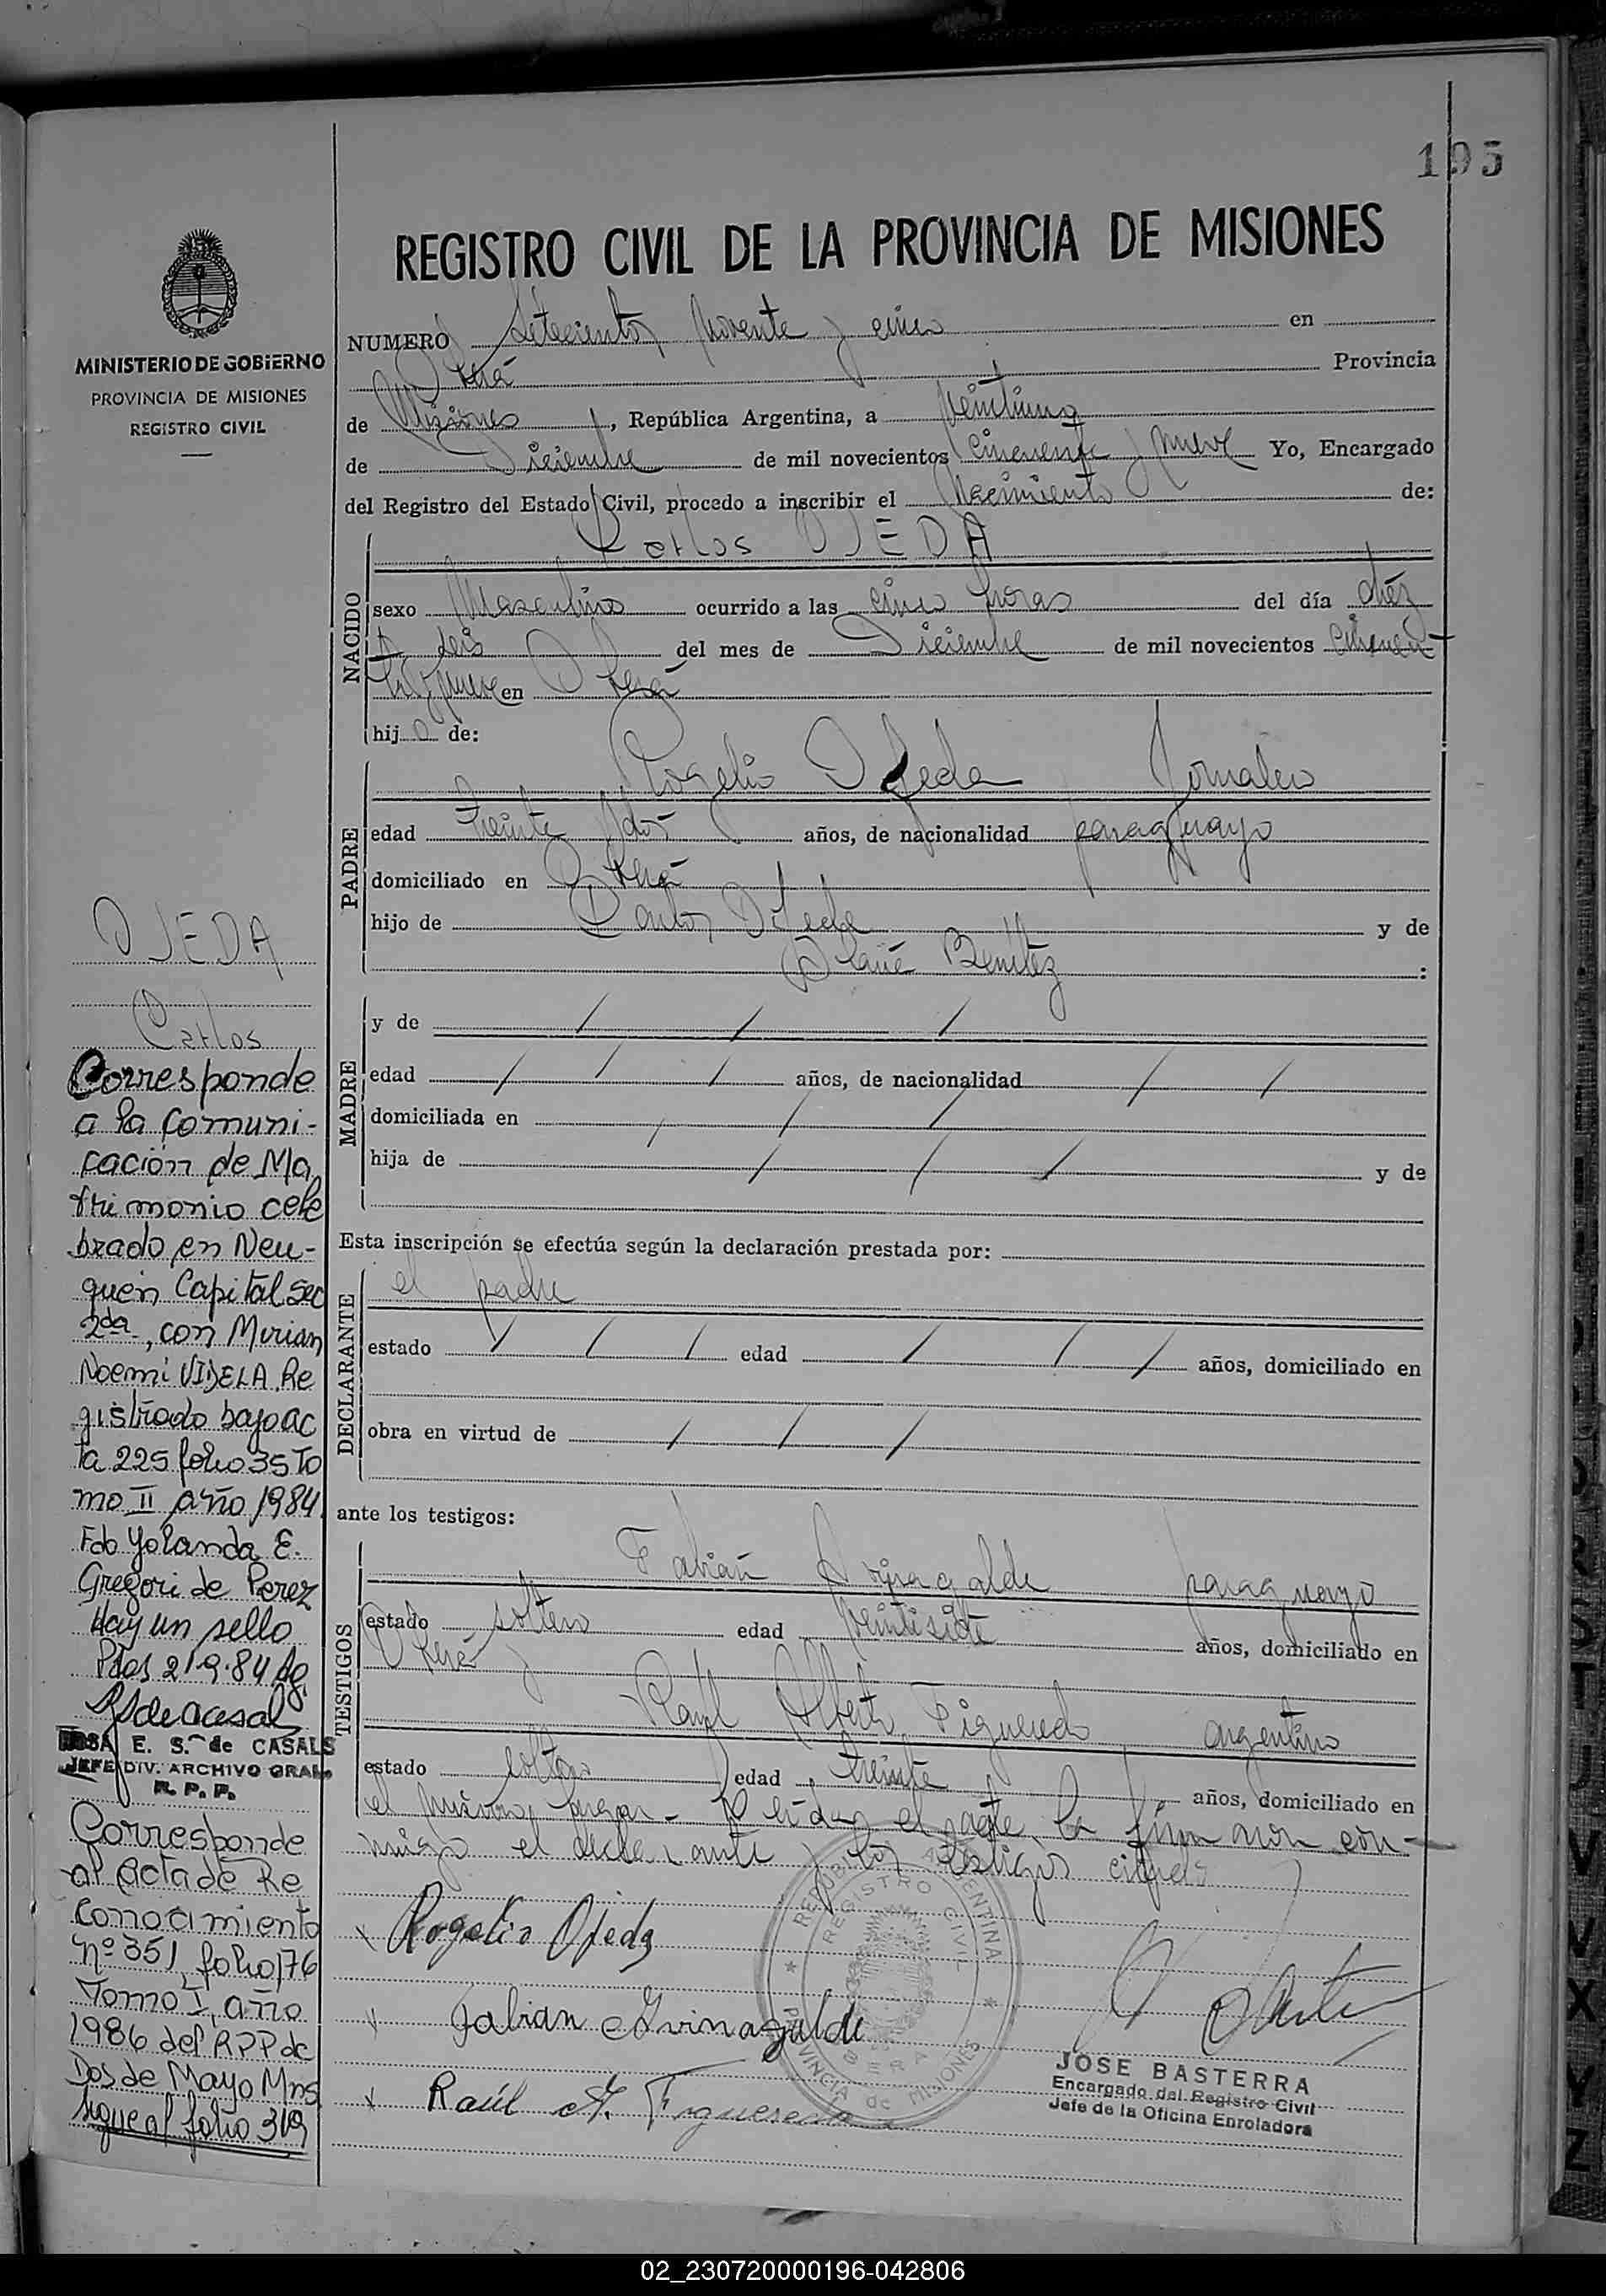 195
REGISTRO CIVIL DE LA PROVINCIA DE MISIONES
MINISTERIO DE GOBIERNO
PROVINCIA DE MISIONES
REGISTRO CIVIL
NUMERO Setecientos noventa y cinco en
Oberá Provincia
de Misiones, República Argentina, a veintiuno
de Diciembre de mil novecientos cincuenta y nueve Yo, Encargado
del Registro del Estado Civil, procedo a inscribir el Nacimiento de:
Carlos OJEDA
NACIDO
sexo Masculino ocurrido a las cinco horas del día diéz
y seis del mes de Diciembre de mil novecientos cincuen
ta y nueve en Oberá
hijo de:
PADRE
Rogelio Ojeda Jornalero
edad treinta y dos años, de nacionalidad paraguayo
domiciliado en Oberá
hijo de Ojeda y de
Benítez :
MADRE
y de / / /
edad / / / años, de nacionalidad / /
domiciliada en / / /
hija de / / / y de
Esta inscripción se efectúa según la declaración prestada por:
DECLARANTE
el padre
estado / / / edad / / / años, domiciliado en
obra en virtud de / / /
ante los testigos:
TESTIGOS
Fabián paraguayo
estado soltero edad veintisiete años, domiciliado en
Oberá y
Raúl Alberto Figueredo argentino
estado soltero edad treinta años, domiciliado en
el mismo lugar - Leída el acta, la firmaron con-
migo el declarante y los testigos citados
Rogelio Ojeda
Fabian
Raúl A. Figueredo
REPUBLICA ARGENTINA
REGISTRO CIVIL
OBERA
PROVINCIA de MISIONES
JOSE BASTERRA
Encargado del Registro Civil
Jefe de la Oficina Enroladora
OJEDA
Carlos
Corresponde
a la comuni-
cación de Ma
trimonio cele
brado en Neu-
quén Capital Sec
2da, con Mirian
Noemí VIDELA. Re
gistrado bajo ac
ta 225 folio 35 To
mo II año 1984
Fdo Yolanda E.
Gregori de Perez
Hay un sello
Pdas 21.9.84
ROSA E. S. de CASALS
JEFE DIV. ARCHIVO GRAL.
R. P. P.
Corresponde
al Acta de Re
conocimiento
nº 351 folio 176
Tomo I, año
1986 del RPP de
Dos de Mayo Mns
sigue al folio 319
02_230720000196-042806